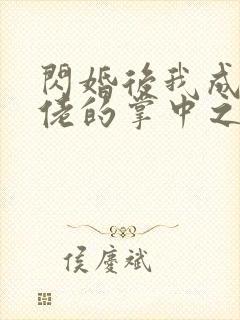 閃婚後我成
佬的掌中之
侯慶斌